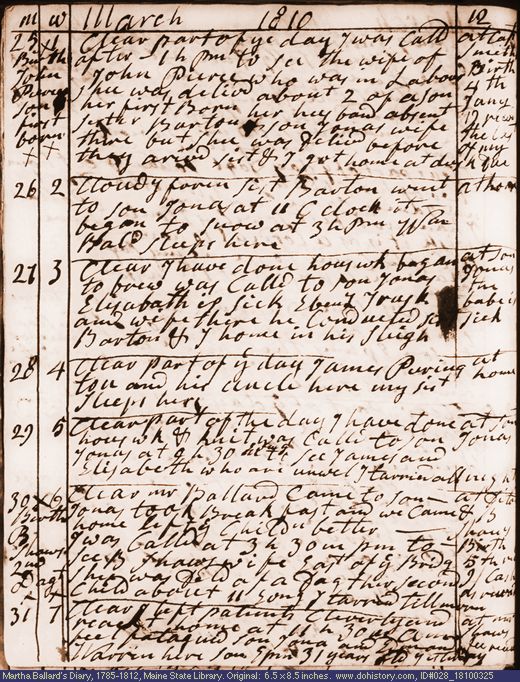 m w March 1810 12
25 1 Clear part of ye day I was Calld at
Birth after 1 h pm to see the wife of Smiths
John John Pierce who was in Labour Birth
Pierce she was delivd about 2 of a son 4 th
son her first Born her husband absent Jany
first sister Barton & son Jonas wife
born there but she was delivd before
X X they arivd sist & I got home at
26 2 Cloudy foren sist Barton went at home
to son Jonas at 11 O Clock it
began to snow at 3 h pm
sleeps here
27 3 Clear I have done hous wk began at son
to brew was Calld to son Jonas Jonas
Elisabeth is sick Ebenr Trask the babe is
and wife there he Conducted sist sick
Barton & I home in his sleigh
28 4 Clear part of ye day James Purington at
ton and his uncle here my sist home
sleeps here
29 5 Clear part of the day I have done at son
hous wk & knit was Calld to son Jonas
Jonas at 9 h 30 m Evng see James and
Elisabeth who are unwel I tarried all night
30 6 Clear mr Ballard Came to son
Birth Jonas took Breakfast and we Came
B home left ye Childn better
Shaws I was Calld at 3 h 30 m pm to Shaws
2nd see B Shaws wife East of ye Bridg Birth
Dagt she was Delivd of a Dagt her second 5 th
Child about 11 Evng I tarried till morn
31 7 Clear left patients Cleverly and at mr
reacht home at 11 h 30 m Shaws
feel fatagud son Jonas and
Warrin here son 39 years old yesterday
Martha Ballard's Diary, 1785-1812, Maine State Library. Original: 6.5 x 8.5 inches. www.dohistory.com, ID#028_18100325